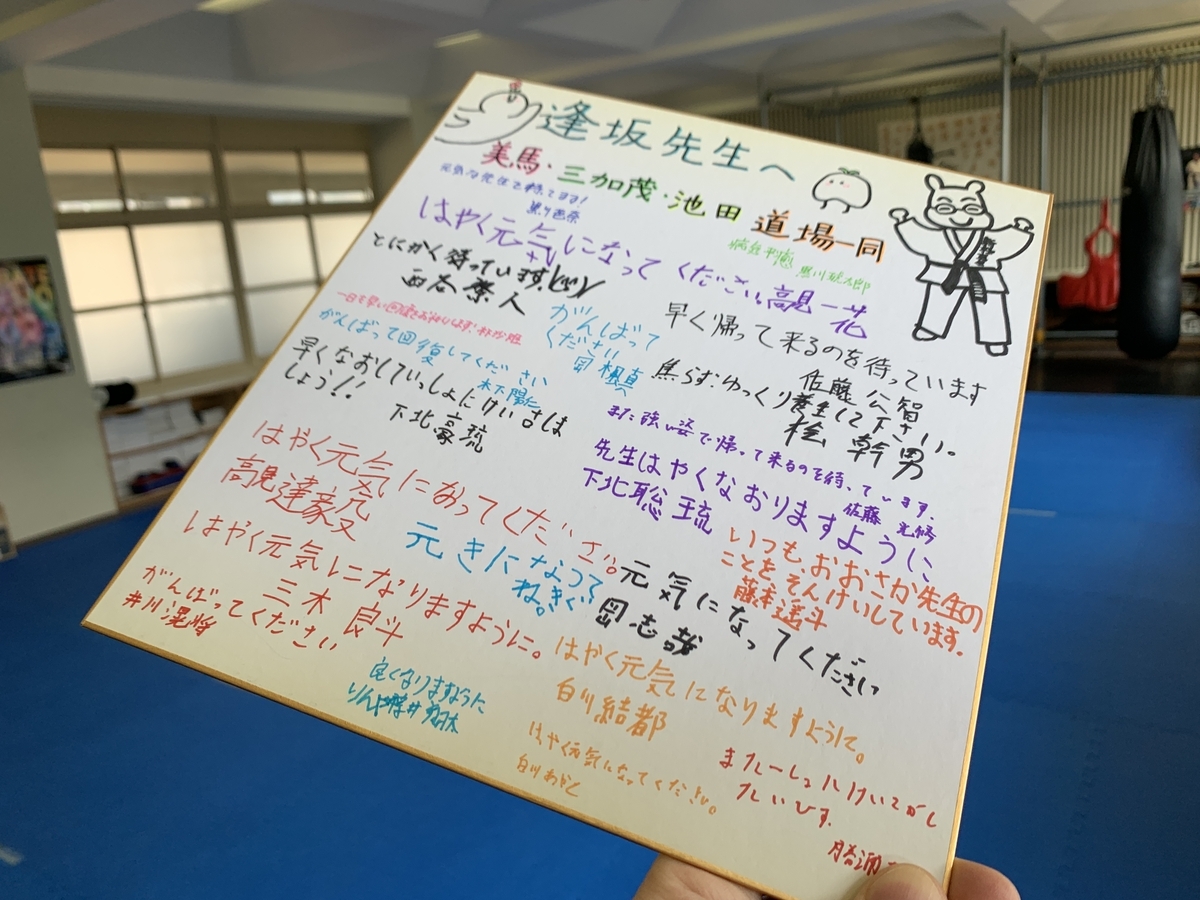 逢坂先生へ
美馬・三加茂・池田 道場一同
元気な先生を待ってます!
はやく元気になってください。高見一花
とにかく待っています!
西谷
早く帰って来るのを待っています
佐藤公智
がんばって
ください
岡 楓真
焦らず、ゆっくり養生して下さい。
桧 幹男
がんばって回復してください
木下陽仁
早くなおしていっしょにけいこしま
しょう!!
下北豪琉
また強い姿で帰って来るのを待っています。
佐藤 光修
先生はやくなおりますように、
下北聡琉
はやく元気になってくださいさ。
高見達豪
いつも、おおさか先生の
ことをそんけいしています。
藤本遥斗
元きになって
ね。
元気になってください
岡志哉
はやく元気になりますように。
三木 良斗
がんばってください
井川滉将
はやく元気になりますように。
白川結都
良くなりますように
はやく元気になってください。
白川あやと
またいっしょにけいこがし
たいです。